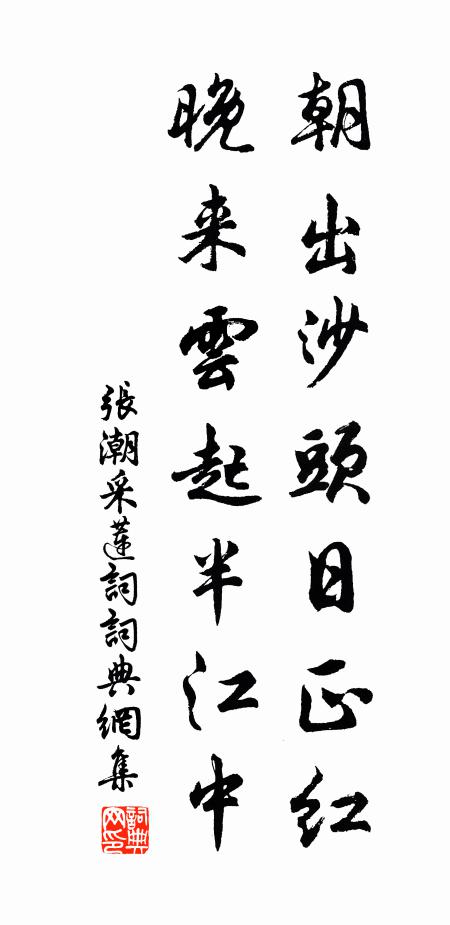 朝出沙頭日正紅
晚来雲起半江中
張潮采蓮詞詞典網集
詞典网印